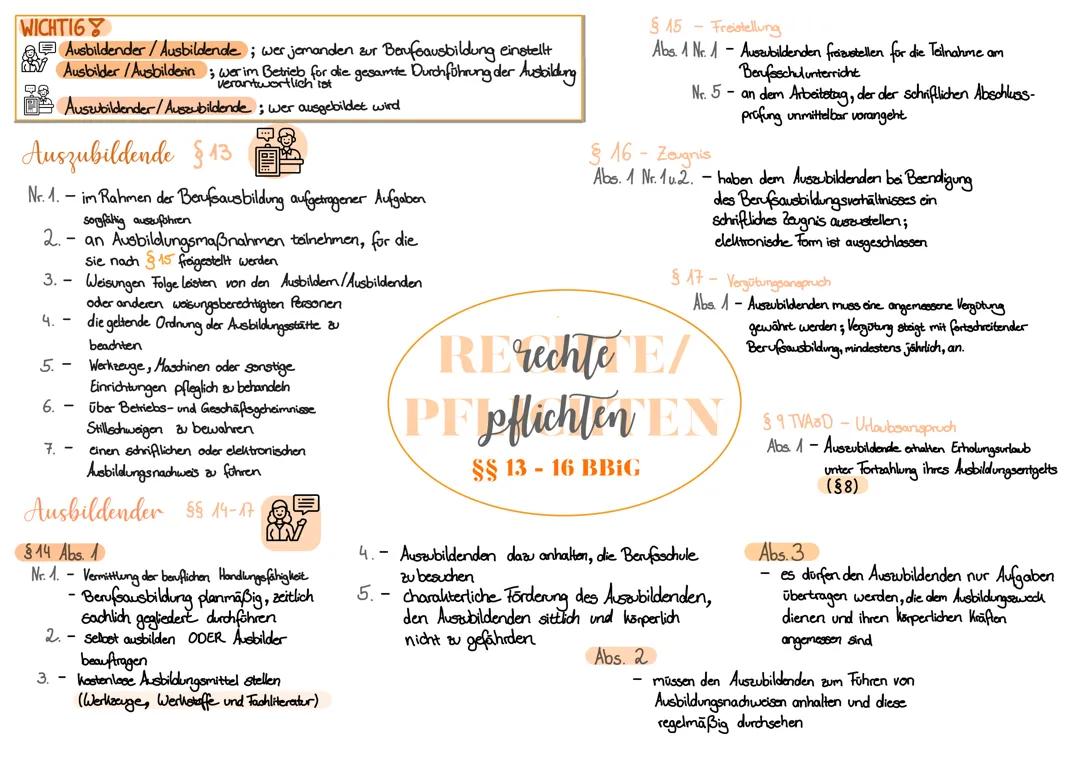 WICHTIG
Ausbildender / Ausbildende ; wer jemanden zur Berufsausbildung einstellt
Ausbilder / Ausbilderin ; wer im Betrieb für die gesamte Durchführung der Ausbildung
verantwortlich ist
Auszubildender / Auszubildende ; wer ausgebildet wird
Auszubildende § 13
Nr. 1. – im Rahmen der Berufsausbildung aufgetragener Aufgaben
sorgfältig auszuführen
2. – an Ausbildungsmaßnahmen teilnehmen, für die
sie nach § 15 freigestellt werden
3. – Weisungen Folge leisten von den Ausbildern/Ausbildenden
oder anderen weisungsberechtigten Personen
4. – die geltende Ordnung der Ausbildungsstätte zu
beachten
5. – Werkzeuge, Maschinen oder sonstige
Einrichtungen pfleglich zu behandeln
6. – über Betriebs- und Geschäftsgeheimnisse
Stillschweigen zu bewahren
7. – einen schriftlichen oder elektronischen
Ausbildungsnachweis zu führen
Ausbildender §§ 14-17
§ 14 Abs. 1
Nr. 1. – Vermittlung der beruflichen Handlungsfähigkeit
– Berufsausbildung planmäßig, zeitlich
sachlich gegliedert durchführen
2. – selbst ausbilden ODER Ausbilder
beauftragen
3. – kostenlose Ausbildungsmittel stellen
(Werkzeuge, Werkstoffe und Fachliteratur)
4. – Auszubildenden dazu anhalten, die Berufsschule
zu besuchen
5. – charakterliche Förderung des Auszubildenden,
den Auszubildenden sittlich und körperlich
nicht zu gefährden
Abs. 2
– müssen den Auszubildenden zum Führen von
Ausbildungsnachweisen anhalten und diese
regelmäßig durchsehen
Abs. 3
– es dürfen den Auszubildenden nur Aufgaben
übertragen werden, die dem Ausbildungszweck
dienen und ihren körperlichen Kräften
angemessen sind
RECHTE/
rechte
PFLICHTEN
pflichten
§§ 13 - 16 BBiG
§ 15 – Freistellung
Abs. 1 Nr. 1 – Auszubildenden freizustellen für die Teilnahme am
Berufsschulunterricht
Nr. 5 – an dem Arbeitstag, der der schriftlichen Abschluss-
prüfung unmittelbar vorangeht
§ 16 – Zeugnis
Abs. 1 Nr. 1 u. 2. – haben dem Auszubildenden bei Beendigung
des Berufsausbildungsverhältnisses ein
schriftliches Zeugnis auszustellen;
elektronische Form ist ausgeschlossen
§ 17 – Vergütungsanspruch
Abs. 1 – Auszubildenden muss eine angemessene Vergütung
gewährt werden ; Vergütung steigt mit fortschreitender
Berufsausbildung, mindestens jährlich, an.
§ 9 TVAöD – Urlaubsanspruch
Abs. 1 – Auszubildende erhalten Erholungsurlaub
unter Fortzahlung ihres Ausbildungsentgelts
(§8)